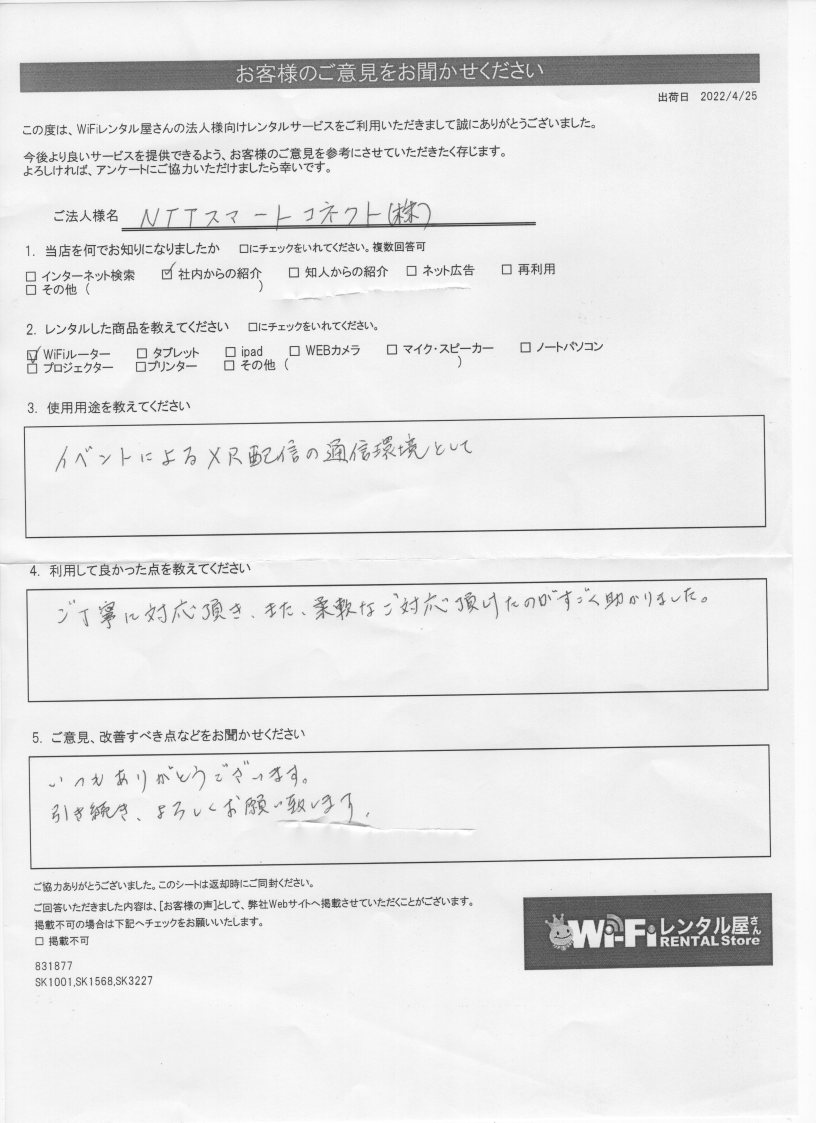 お客様のご意見をお聞かせください
出荷日 2022/4/25
この度は、WiFiレンタル屋さんの法人様向けレンタルサービスをご利用いただきまして誠にありがとうございました。
今後より良いサービスを提供できるよう、お客様のご意見を参考にさせていただきたく存じます。
よろしければ、アンケートにご協力いただけましたら幸いです。
ご法人様名 NTTスマートコネクト(株)
1. 当店を何でお知りになりましたか □にチェックをいれてください。複数回答可
□ インターネット検索 ☑ 社内からの紹介 □ 知人からの紹介 □ ネット広告 □ 再利用
□ その他 ( )
2. レンタルした商品を教えてください □にチェックをいれてください。
☑ WiFiルーター □ タブレット □ ipad □ WEBカメラ □ マイク・スピーカー □ ノートパソコン
□ プロジェクター □プリンター □ その他 ( )
3. 使用用途を教えてください
イベントによるXR配信の通信環境として
4. 利用して良かった点を教えてください
ご丁寧に対応頂き、また、柔軟なご対応頂けたのがすごく助かりました。
5. ご意見、改善すべき点などをお聞かせください
いつもありがとうございます。
引き続き、よろしくお願い致します。
ご協力ありがとうございました。このシートは返却時にご同封ください。
ご回答いただきました内容は、[お客様の声]として、弊社Webサイトへ掲載させていただくことがございます。
掲載不可の場合は下記へチェックをお願いいたします。
□ 掲載不可
831877
SK1001,SK1568,SK3227
Wi-Fiレンタル屋さん
RENTAL Store